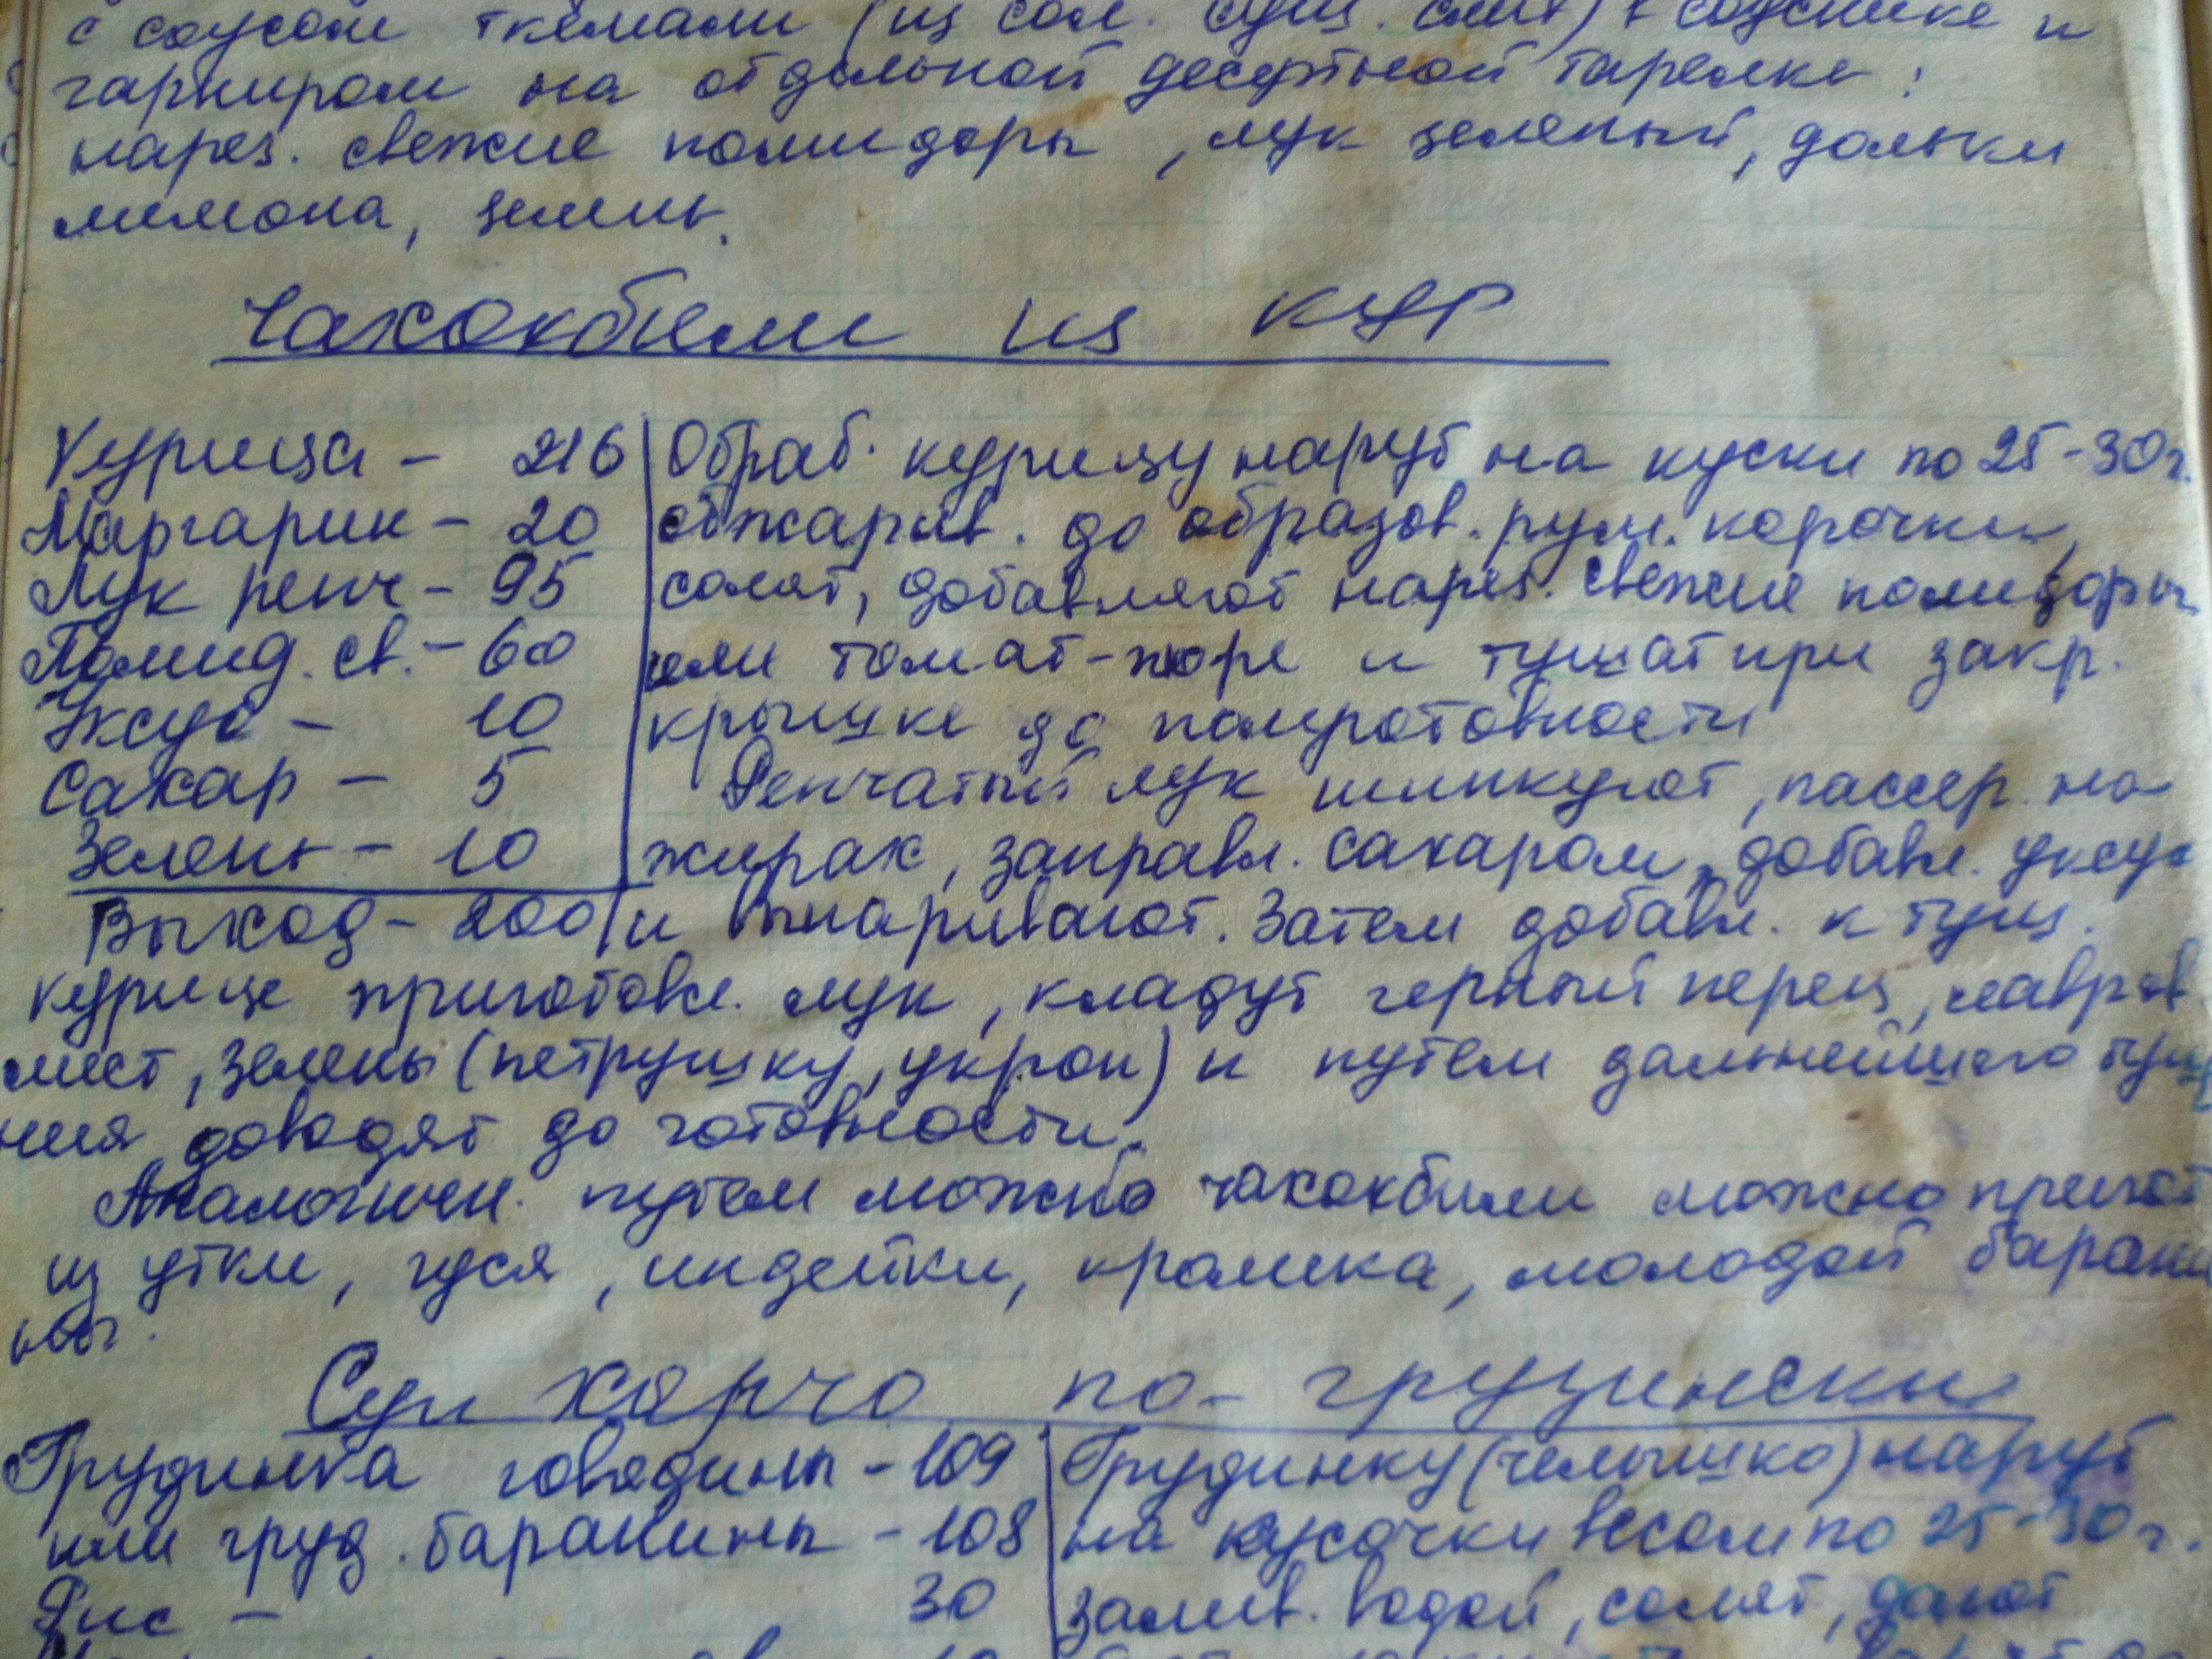 с соусом ткемали (из сол. суш. слив) в соуснике и
гарниром на отдельной десертной тарелке:
нарез. свежие помидоры, лук зеленый, дольки
лимона, зелень.
Чахокбили из кур
Курица - 216 Обраб. курицу наруб на куски по 25-30 г.
Маргарин - 20 обжарив. до образов. рум. корочки,
Лук репч - 95 солят, добавляют нарез. свежие помидоры
Помид. св. - 60 или томат-пюре и тушат при закр.
Уксус - 10 крышке до полуготовности
Сахар - 5 Репчатый лук шинкуют, пассер. на
Зелень - 10 жирах, заправл. сахаром, добавл. уксус
Выход - 200 и выпаривают. Затем добавл. к туш.
курице приготовл. лук, кладут черный перец, лавров
лист, зелень (петрушку, укроп) и путем дальнейшего туше
ния доводят до готовности.
Аналогичн. путем можно чахокбили можно пригот
из утки, гуся, индейки, кролика, молодой барани
ны.
Суп харчо по-грузински
Грудинка говядины - 109 Грудинку (челышко) наруб
или груд. баранины - 108 на кусочки весом по 25-30 г.
Рис - 30 залив. водой, солят, дают